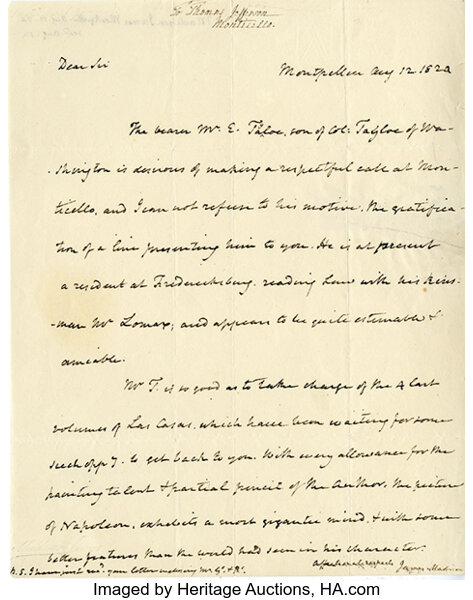 To Thomas Jefferson
Monticello.
Dear Sir
Montpellier Aug 12. 182
The bearer Mr. E. Tayloe, son of Col: Tayloe of Wa-
shington is desirous of making a respectful call at Mon-
ticello, and I can not refuse to his motive, the gratifica-
tion of a line presenting him to you. He is at present
a resident at Fredericksburg. reading Law with his kins-
-man Mr Lomax; and appears to be quite estimable &
amiable.
Mr T. is so good as to take charge of the 4 last
volumes of Las Casas, which have been waiting for some
such oppy. to get back to you. With every allowance for the
painting talent & partial pencil of the Author, the picture
of Napoleon, exhibits a most gigantic mind, & with some
better features than the world had seen in his character.
Affectionate respects James Madison
P.S. I have just recd. your letter inclosing Mr G's &
Imaged by Heritage Auctions, HA.com